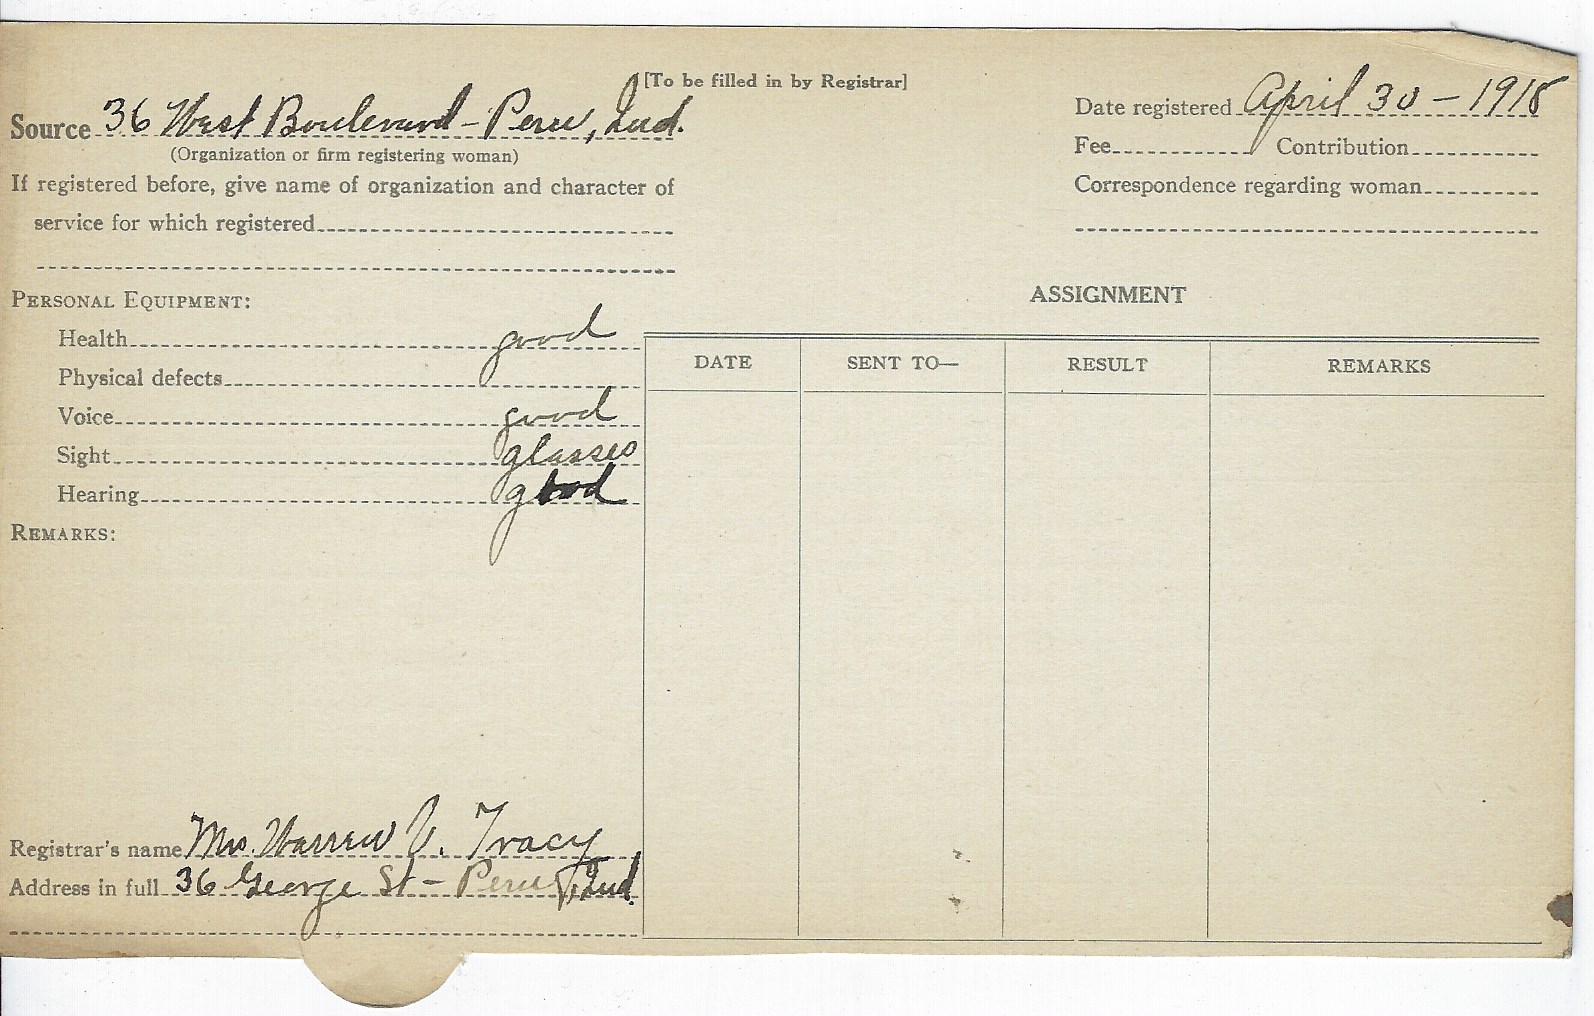 [To be filled in by Registrar]
Source 36 West Boulevard - Peru, Ind.
(Organization or firm registering woman)
If registered before, give name of organization and character of
service for which registered
Date registered April 30 - 1918
Fee Contribution
Correspondence regarding woman
PERSONAL EQUIPMENT:
Health good
Physical defects
Voice good
Sight glasses
Hearing good
REMARKS:
ASSIGNMENT
DATE SENT TO— RESULT REMARKS
Registrar's name Mrs. Warren V. Tracy
Address in full 36 George St - Peru, Ind.